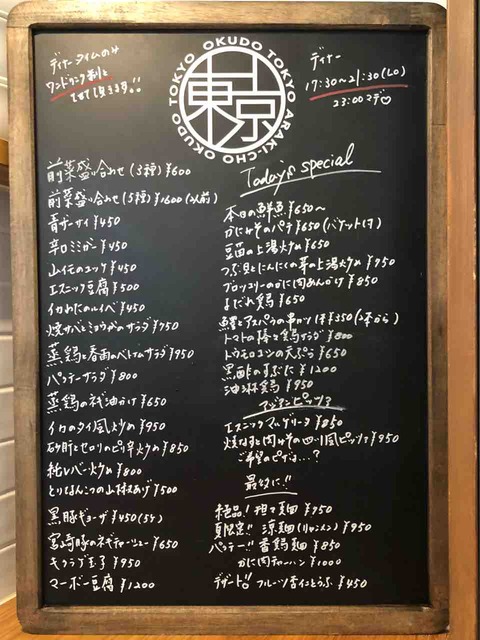 ディナータイムのみ
ワンドリンク制と
させて頂きます!!
OKUDO TOKYO ARAKI-CHO OKUDO TOKYO
東京
ディナー
17:30〜21:30(LO)
23:00マデ♡
前菜盛り合わせ(3種)¥600
前菜盛り合わせ(5種)¥1600(2人前)
青ザーサイ ¥450
辛口ミミガー ¥450
山イモのユッケ ¥450
エスニック豆腐 ¥500
イカわたのルイベ ¥450
焼サバとミョウガのサラダ ¥750
蒸鶏と春雨のベトナムサラダ ¥950
パクチーサラダ ¥800
蒸鶏のネギ油かけ ¥650
イカのタイ風炒め ¥950
砂肝とセロリのピリ辛炒め ¥850
純レバー炒め ¥800
とりなんこつの山椒あげ ¥500
黒豚ギョーザ ¥450(5ケ)
宮崎豚のネギチャーシュー ¥650
キクラゲ玉子 ¥950
マーボー豆腐 ¥1200
Today's special
本日の鮮魚 ¥650〜
かにみそのパテ ¥650(バゲット付)
豆苗の上湯炒め ¥650
つぶ貝とにんにくの芽の上湯炒め ¥950
ブロッコリーのかに肉あんかけ ¥850
よだれ鶏 ¥650
鱧とアスパラの串カツ 1本¥350(2本から)
トマトの棒々鶏サラダ ¥800
トウモロコシの天ぷら ¥650
黒酢のすぶた ¥1200
油淋鶏 ¥950
アジアンピッツァ
エスニックマルゲリータ ¥850
焼なすと肉みその四川風ピッツァ ¥950
ご希望のピザは…?
最後に!!
絶品!担々麺 ¥950
夏限定!!涼麺(リャンメン) ¥950
パクチー!!香鶏麺 ¥850
かに肉チャーハン ¥1000
デザート!!フルーツ杏仁とうふ ¥450